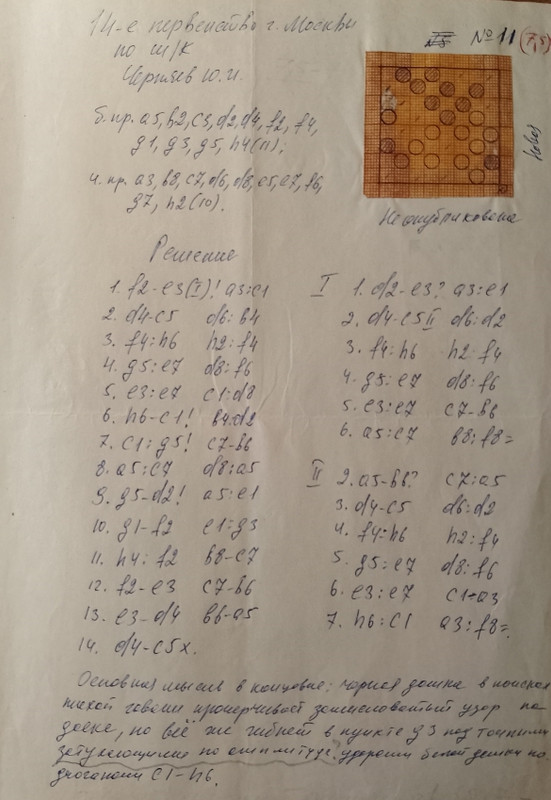 14-е первенство г. Москвы
по ш/к
Черняев Ю.И.
№ 11 (7,5)
б. пр. a5, b2, c3, d2, d4, f2, f4,
g1, g3, g5, h4 (11);
ч. пр. a3, b8, c7, d6, d8, e5, e7, f6,
g7, h2 (10).
Неопубликована
Решение
1. f2-e3(I)! a3:c1
2. d4-c5 d6:b4
3. f4:h6 h2:f4
4. g5:e7 d8:f6
5. e3:e7 c1:d8
6. h6-c1! b4:d2
7. c1:g5! c7-b6
8. a5:c7 d8:a5
9. g5-d2! a5:e1
10. g1-f2 e1:g3
11. h4:f2 b8-c7
12. f2-e3 c7-b6
13. e3-d4 b6-a5
14. d4-c5x.
I 1. d2-e3? a3:e1
2. d4-c5 II d6:d2
3. f4:h6 h2:f4
4. g5:e7 d8:f6
5. e3:e7 c7-b6
6. a5:c7 b8:f8=
II 2. a5-b6? c7:a5
3. d4-c5 d6:d2
4. f4:h6 h2:f4
5. g5:e7 d8:f6
6. e3:e7 c1-a3
7. h6:c1 a3:f8=.
Основная мысль в концовке: чорная дамка в поисках
тихой гавани прочерчивает замысловатый узор на
доске, но всё же гибнет в пункте g3 под точными
затухающими по амплитуде ударами белой дамки по
диагонали c1-h6.